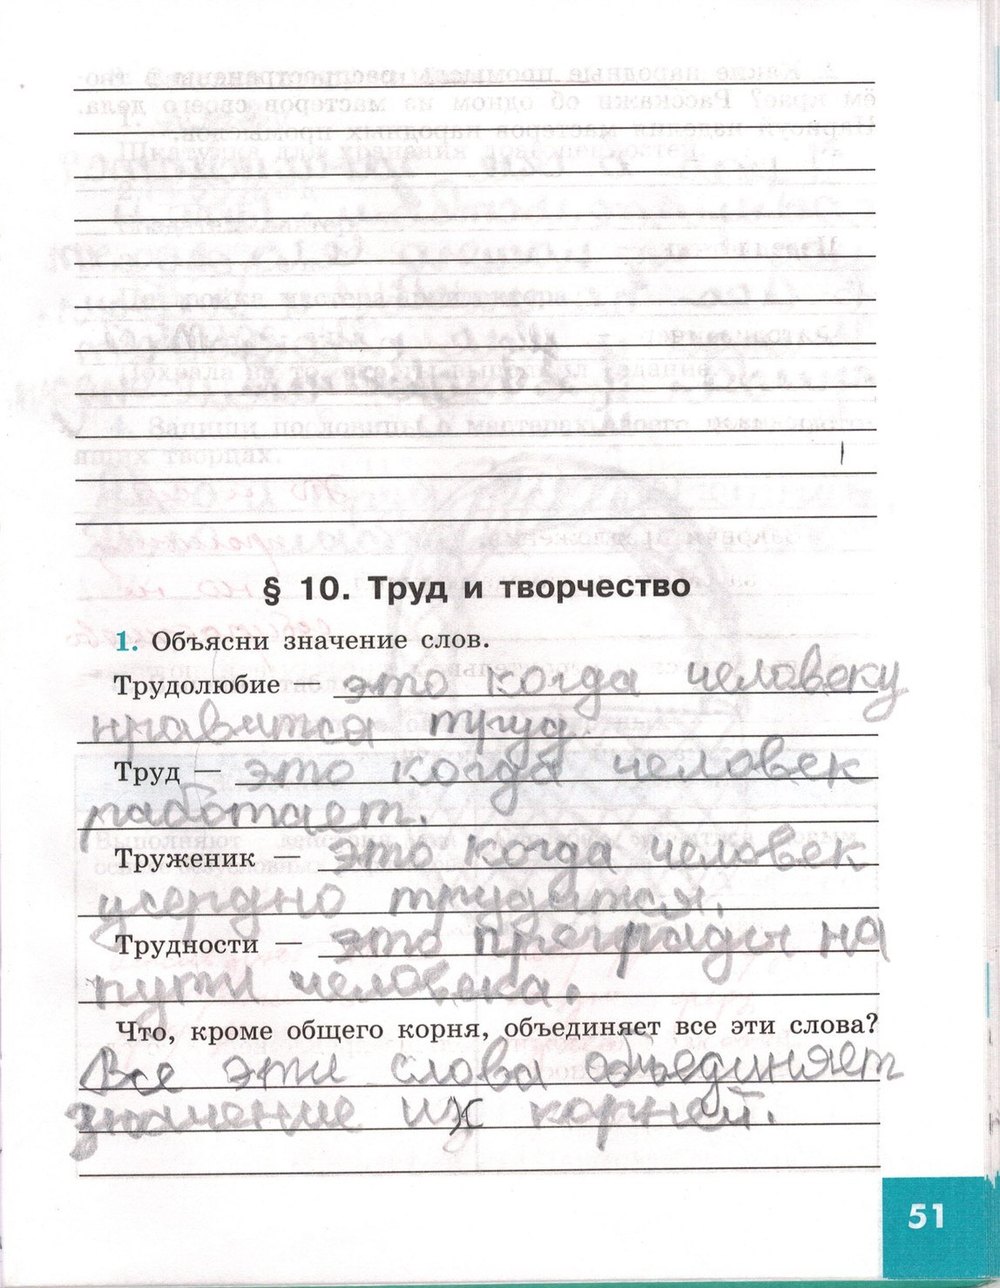 § 10. Труд и творчество
1. Объясни значение слов.
Трудолюбие — это когда человеку
нравится труд.
Труд — это когда человек
работает.
Труженик — это когда человек
усердно трудится.
Трудности — это преграды на
пути человека.
Что, кроме общего корня, объединяет все эти слова?
Все эти слова объединяет
значение их корней.
51